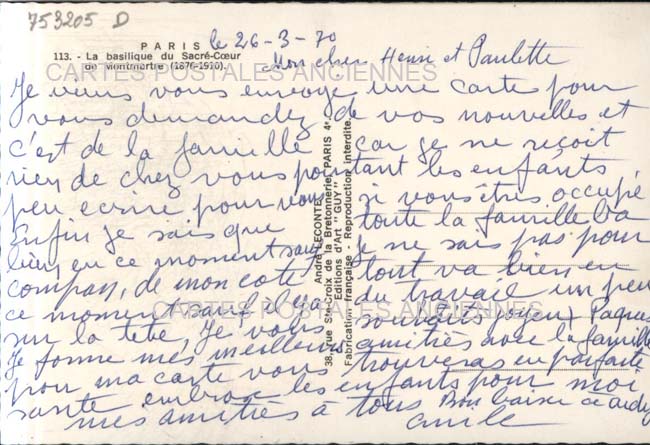 753205 D
PARIS
le 26-3-70
113. - La basilique du Sacré-Cœur
de Montmartre (1876-1910).
Mon cher Henri et Paulette
CARTES POSTALES ANCIENNES
Je veux vous envoye une carte pour
vous demandez de vos nouvelles et
c'est de la famille car je ne reçoit
rien de chez vous pourtant les enfants
peu ecrire pour vous si vous êtres occupé
Enfin je sais que toute la famille va
bien en ce moment sauf je ne sais pas pour
de mon coté tout va bien en
ce moment sauf du travail un peu
CARTES POSTALES ANCIENNES
sur la tete, Je vous souhais joyeux Paques
Je forme mes meilleurs amitiés avec la famille
pour ma carte vous trouveras en parfaite
santé embrac les enfants pour moi
mes amitiés à tous Bon baiser
André LECONTE
38, rue Ste-Croix de la Bretonnerie, PARIS 4e
Editions d'Art "GUY"
Fabrication française - Reproduction interdite